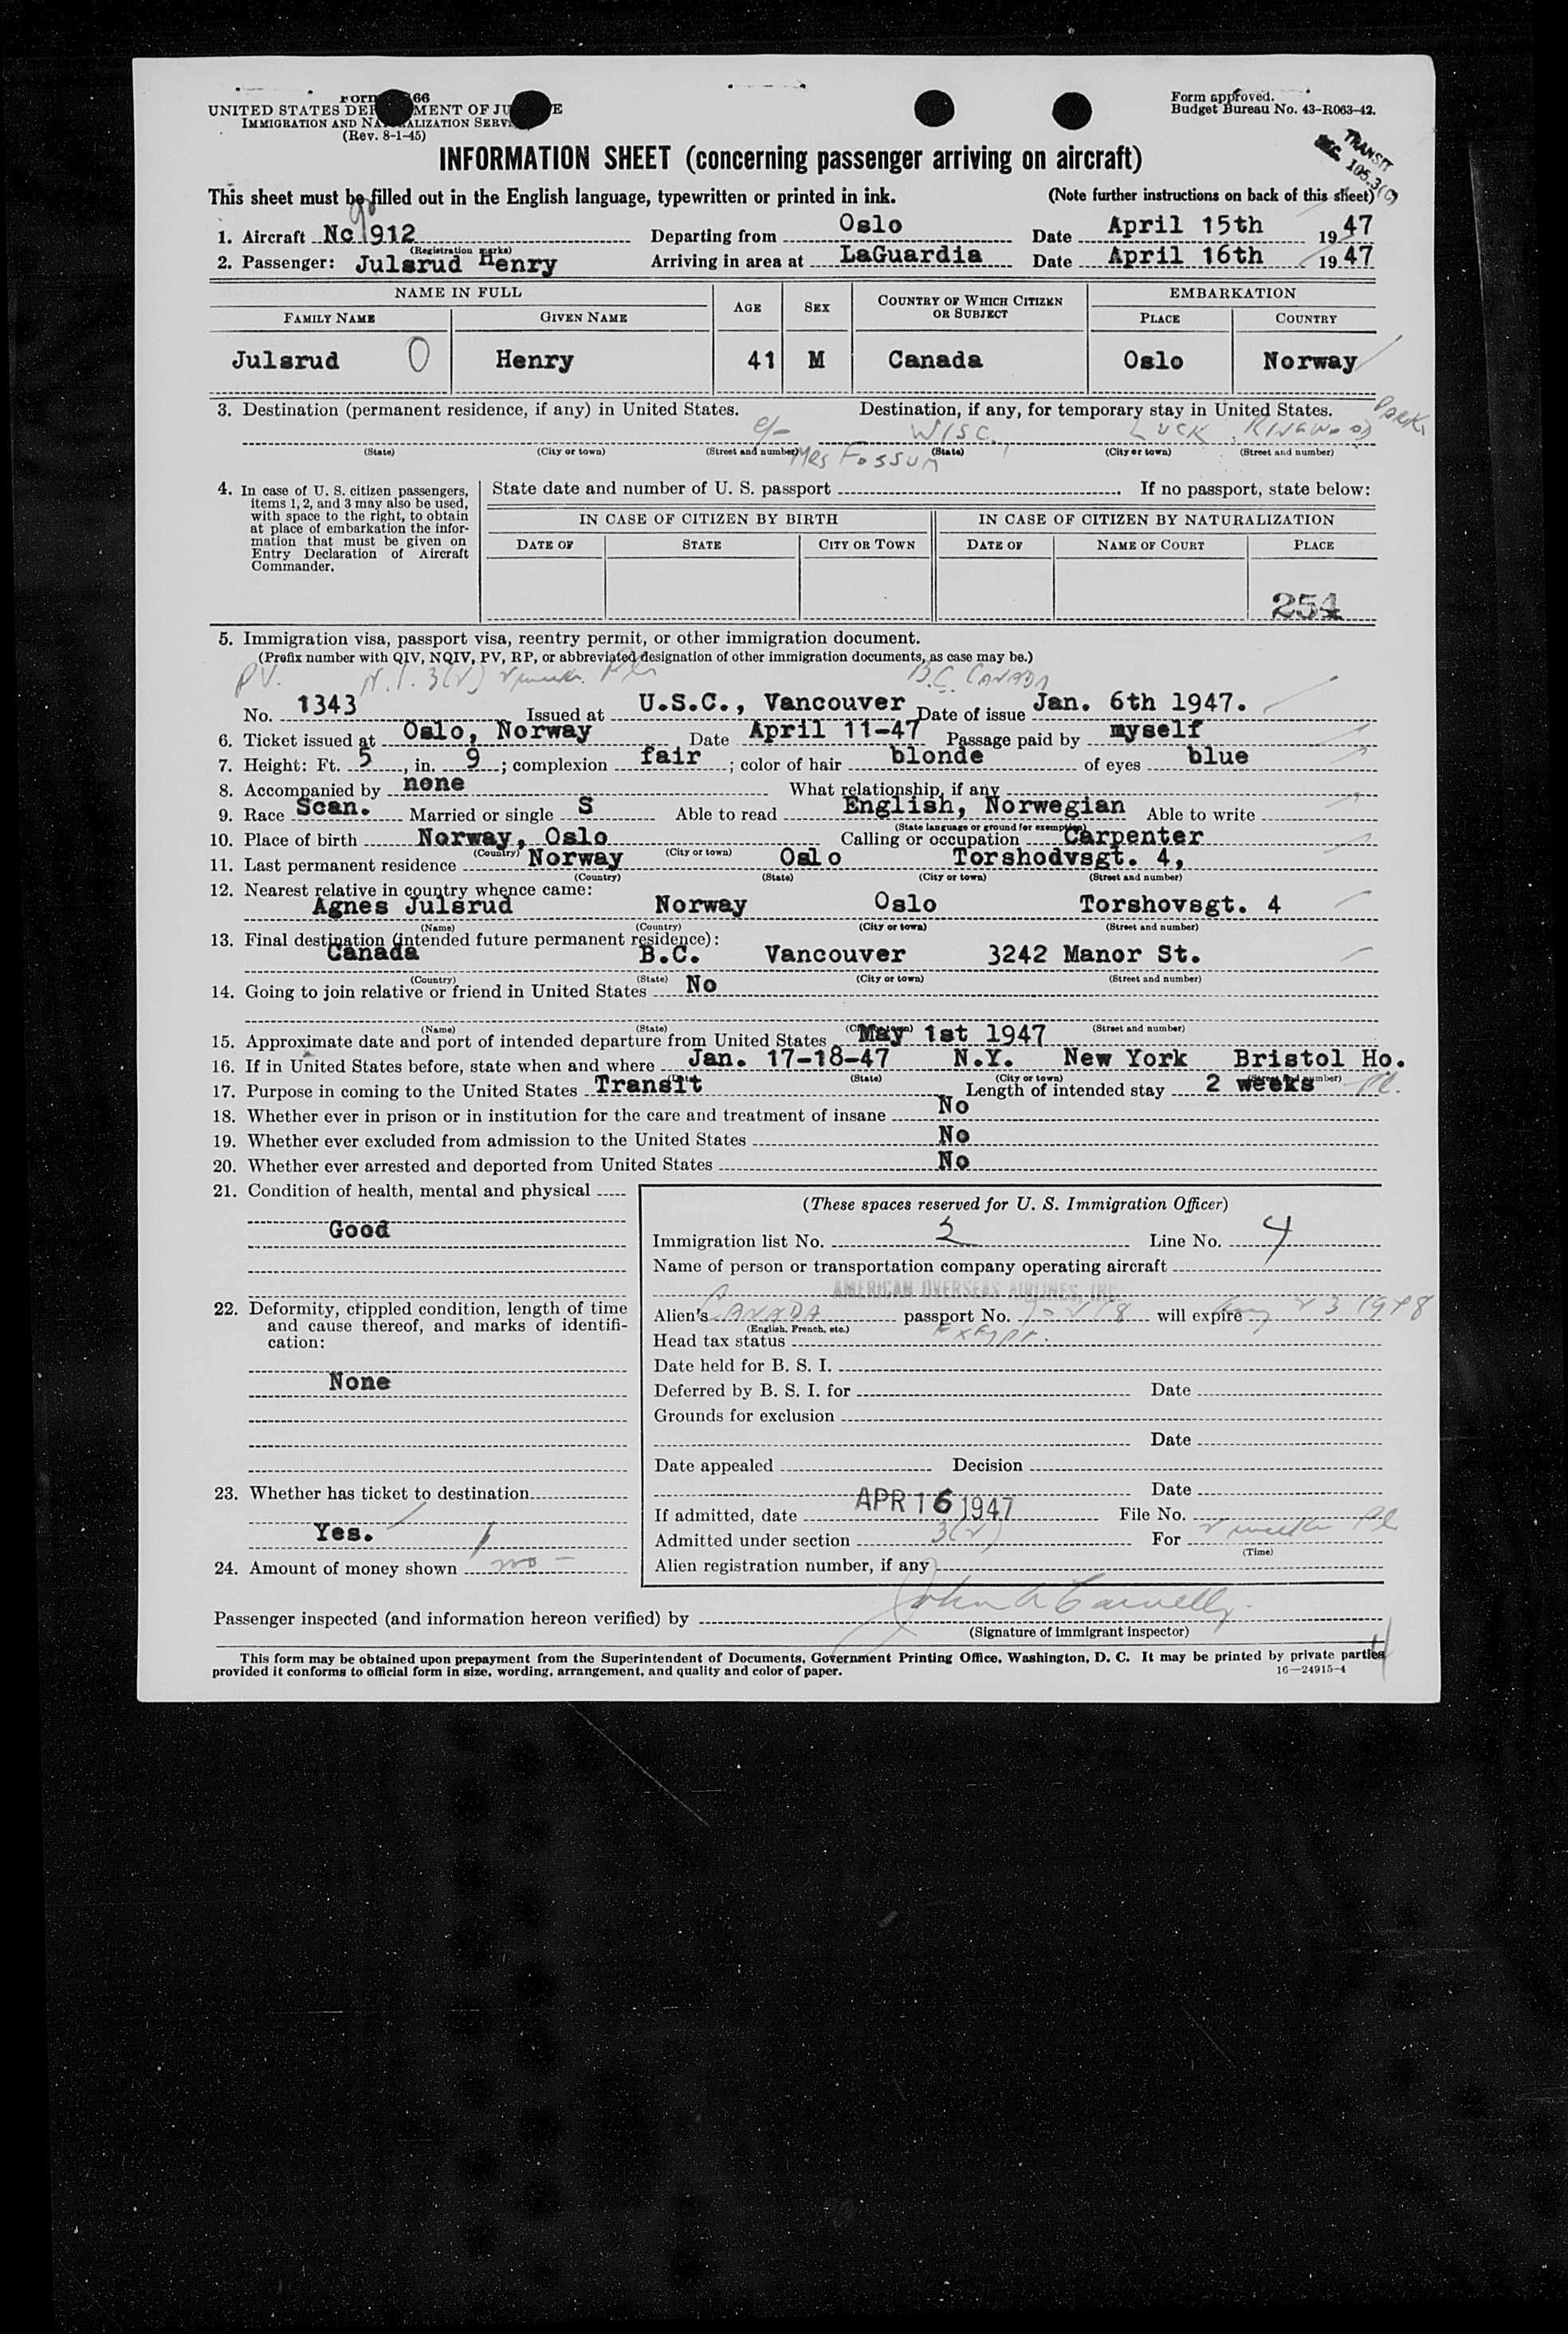 Form 66
UNITED STATES DEP MENT OF JU E
IMMIGRATION AND NA ALIZATION SERV
(Rev. 8-1-45)
Form approved.
Budget Bureau No. 43-R063-42.
TRANSIT
SEC. 105.3(C)
INFORMATION SHEET (concerning passenger arriving on aircraft)
This sheet must be filled out in the English language, typewritten or printed in ink. (Note further instructions on back of this sheet)
1. Aircraft Nc 90912 Departing from Oslo Date April 15th 1947
(Registration marks)
2. Passenger: Julsrud Henry Arriving in area at LaGuardia Date April 16th 1947
NAME IN FULL AGE SEX COUNTRY OF WHICH CITIZEN OR SUBJECT EMBARKATION
FAMILY NAME GIVEN NAME PLACE COUNTRY
Julsrud O Henry 41 M Canada Oslo Norway
3. Destination (permanent residence, if any) in United States. Destination, if any, for temporary stay in United States.
c/o WISC. LUCK, RINGWOOD PARK
(State) (City or town) (Street and number) Mrs FOSSUM (State) (City or town) (Street and number)
4. In case of U. S. citizen passengers, items 1, 2, and 3 may also be used, with space to the right, to obtain at place of embarkation the information that must be given on Entry Declaration of Aircraft Commander.
State date and number of U. S. passport . If no passport, state below:
IN CASE OF CITIZEN BY BIRTH IN CASE OF CITIZEN BY NATURALIZATION
DATE OF STATE CITY OR TOWN DATE OF NAME OF COURT PLACE
254
5. Immigration visa, passport visa, reentry permit, or other immigration document.
(Prefix number with QIV, NQIV, PV, RP, or abbreviated designation of other immigration documents, as case may be.)
PV. N.I. 3(2) 2 weeks B.C. CANADA
No. 1343 Issued at U.S.C., Vancouver Date of issue Jan. 6th 1947.
6. Ticket issued at Oslo, Norway Date April 11-47 Passage paid by myself
7. Height: Ft. 5, in. 9; complexion fair; color of hair blonde of eyes blue
8. Accompanied by none What relationship, if any
9. Race Scan. Married or single S Able to read English, Norwegian Able to write
(State language or ground for exemption)
10. Place of birth Norway, Oslo Calling or occupation Carpenter
(Country) (City or town)
11. Last permanent residence Norway Oslo Torshodvsgt. 4,
(Country) (State) (City or town) (Street and number)
12. Nearest relative in country whence came:
Agnes Julsrud Norway Oslo Torshovsgt. 4
(Name) (Country) (City or town) (Street and number)
13. Final destination (intended future permanent residence):
Canada B.C. Vancouver 3242 Manor St.
(Country) (State) (City or town) (Street and number)
14. Going to join relative or friend in United States No
(Name) (State) (City or town) (Street and number)
15. Approximate date and port of intended departure from United States May 1st 1947
16. If in United States before, state when and where Jan. 17-18-47 N.Y. New York Bristol Ho.
(Date) (State) (City or town) (Street and number)
17. Purpose in coming to the United States Transit Length of intended stay 2 weeks
18. Whether ever in prison or in institution for the care and treatment of insane No
19. Whether ever excluded from admission to the United States No
20. Whether ever arrested and deported from United States No
21. Condition of health, mental and physical
Good
22. Deformity, crippled condition, length of time and cause thereof, and marks of identification:
None
23. Whether has ticket to destination
Yes.
24. Amount of money shown
(These spaces reserved for U. S. Immigration Officer)
Immigration list No. 2 Line No. 4
Name of person or transportation company operating aircraft
AMERICAN OVERSEAS AIRLINES, INC.
Alien's CANADA passport No. will expire 23 1948
(English, French, etc.)
Head tax status Exempt.
Date held for B. S. I.
Deferred by B. S. I. for Date
Grounds for exclusion
Date
Date appealed Decision
Date
If admitted, date APR 16 1947 File No.
Admitted under section 3(2) For 2 weeks
(Time)
Alien registration number, if any
Passenger inspected (and information hereon verified) by
(Signature of immigrant inspector)
This form may be obtained upon prepayment from the Superintendent of Documents, Government Printing Office, Washington, D. C. It may be printed by private parties
provided it conforms to official form in size, wording, arrangement, and quality and color of paper. 16—24915-4